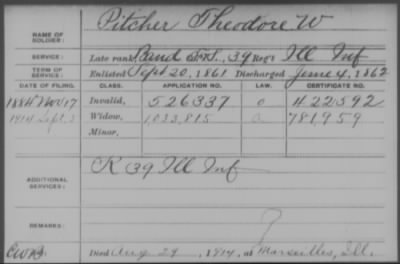 NAME OF SOLDIER: Pitcher Theodore W
SERVICE: Late rank, Band F&S, 39 Reg't Ill Inf
TERM OF SERVICE: Enlisted Sept 20, 1861 Discharged June 4, 1862
DATE OF FILING. CLASS. APPLICATION NO. LAW. CERTIFICATE NO.
1884 Nov 17 Invalid, 526337 422592
1914 Sept. 3 Widow, 1,033,815 781,959
Minor,
ADDITIONAL SERVICES: K 39 Ill Inf
REMARKS:
Died Aug 29, 1914, at Marseilles, Ill.